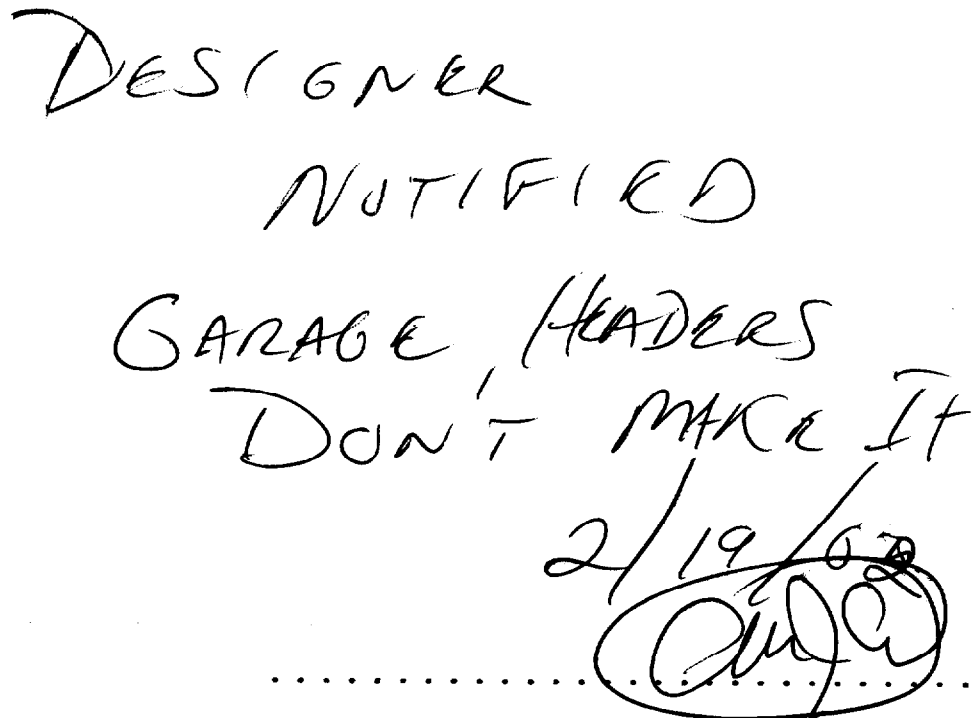 DESIGNER
NOTIFIED
GARAGE HEADERS
DON'T MAKE It
2/19/02